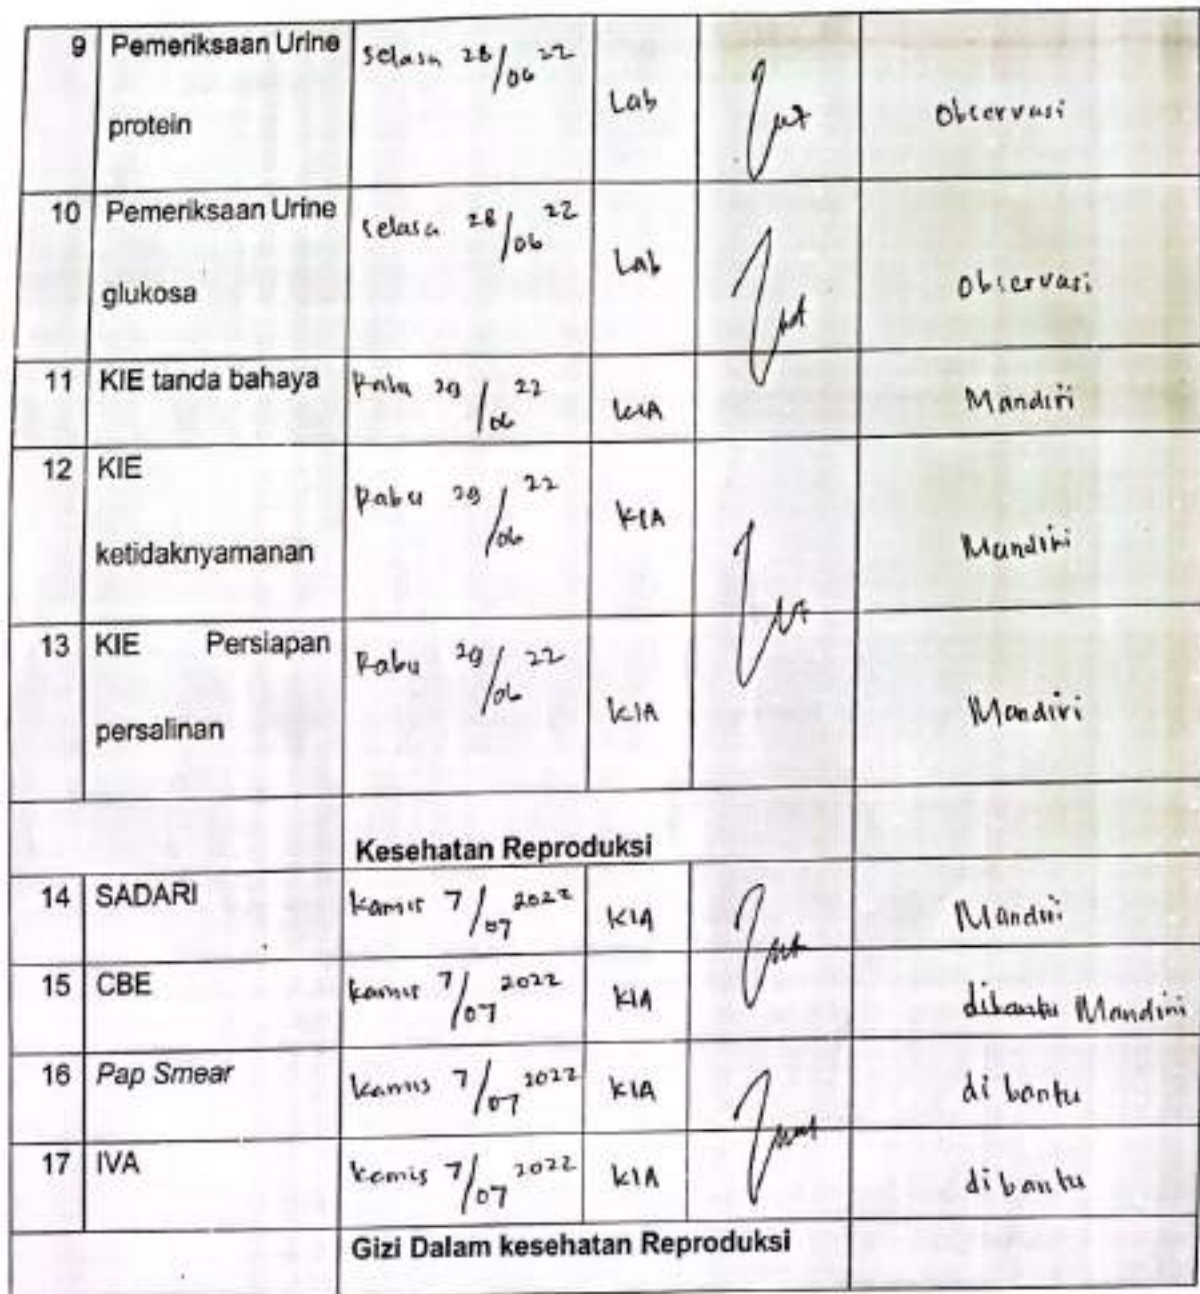 9 Pemeriksaan Urine Selasa 28/06 22
protein Lab Observasi
10 Pemeriksaan Urine Selasa 28/06 22
glukosa Lab Observasi
11 KIE tanda bahaya Rabu 29/06 22 KIA Mandiri
12 KIE Rabu 29/06 22 KIA
ketidaknyamanan Mandiri
13 KIE Persiapan Rabu 29/06 22
persalinan KIA Mandiri
Kesehatan Reproduksi
14 SADARI Kamis 7/07 2022 KIA Mandiri
15 CBE Kamis 7/07 2022 KIA dibantu Mandiri
16 Pap Smear Kamis 7/07 2022 KIA di bantu
17 IVA Kamis 7/07 2022 KIA dibantu
Gizi Dalam kesehatan Reproduksi